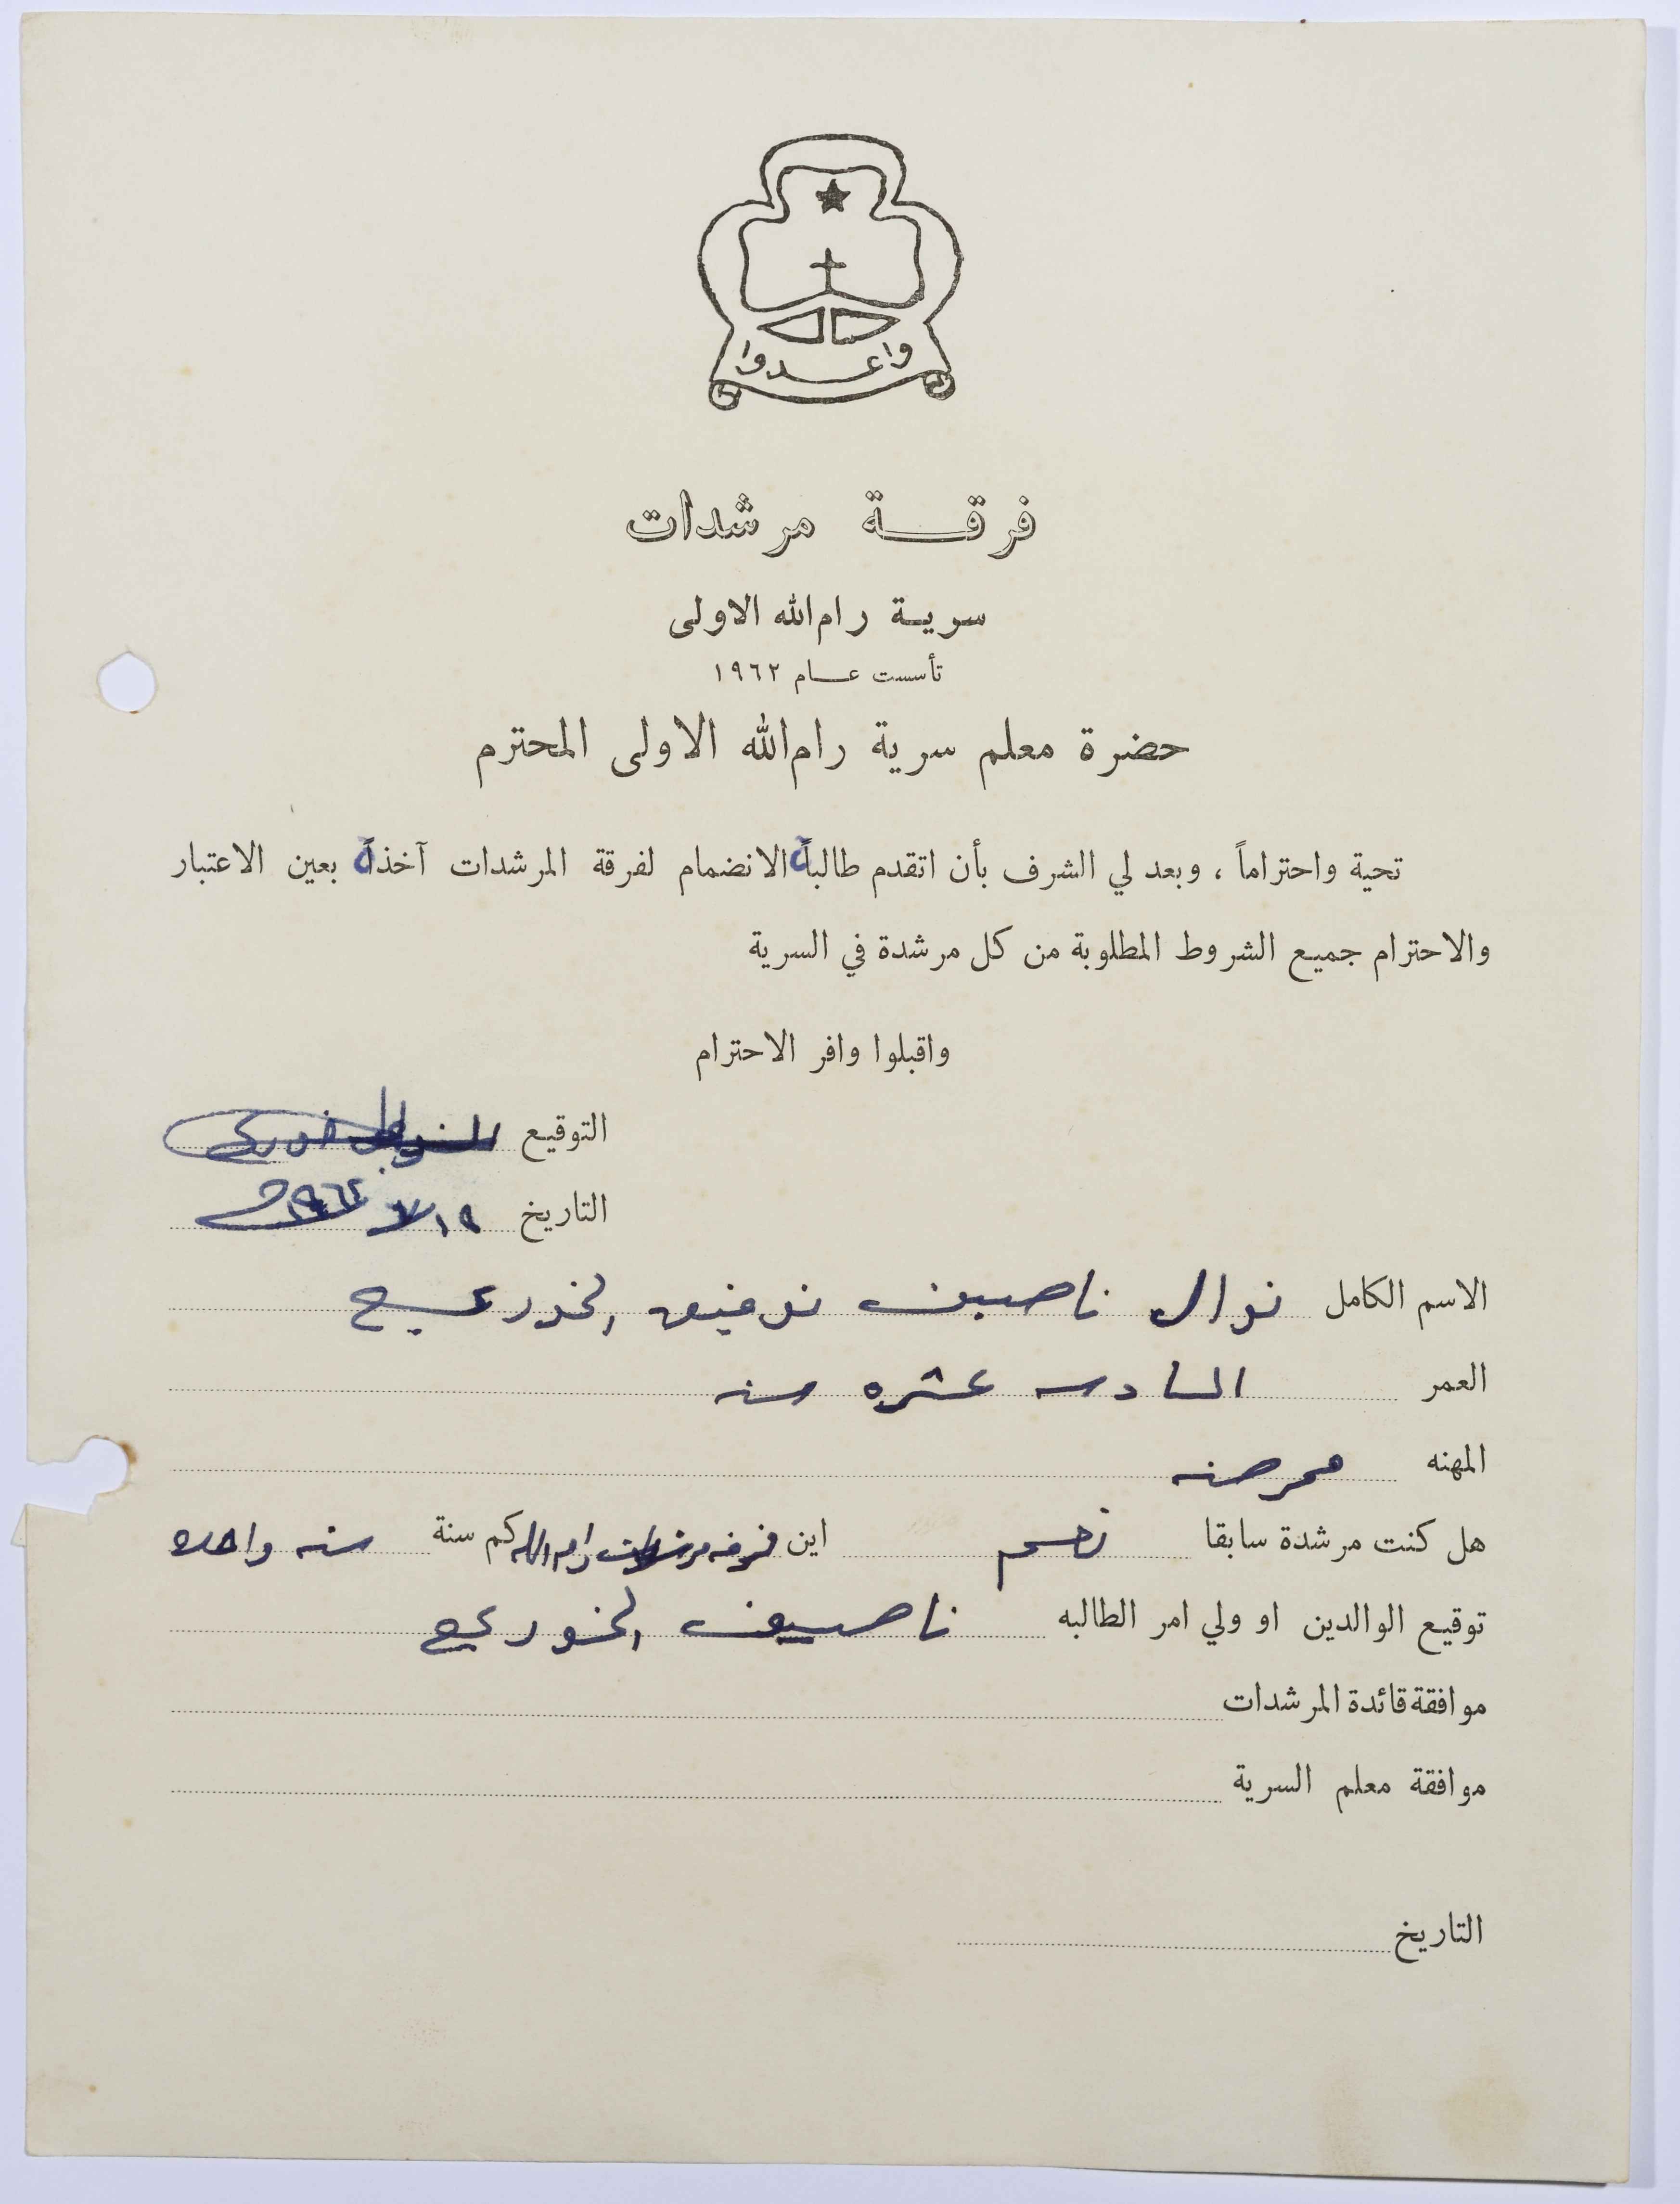 واعدوا
فرقة مرشدات
سرية رام الله الاولى
تأسست عام ١٩٦٢
حضرة معلم سرية رام الله الاولى المحترم
تحية واحتراماً ، وبعد لي الشرف بأن اتقدم طالبة الانضمام لفرقة المرشدات آخذة بعين الاعتبار
والاحترام جميع الشروط المطلوبة من كل مرشدة في السرية
واقبلوا وافر الاحترام
التوقيع
التاريخ
الاسم الكامل نوال ناصيف توفيق الخوري
العمر السادسه عشره سنه
المهنه ممرضه
هل كنت مرشدة سابقا نعم اين فرقه مرشدات رام الله كم سنة سنه واحده
توقيع الوالدين او ولي امر الطالبه ناصيف الخوري
موافقة قائدة المرشدات
موافقة معلم السرية
التاريخ